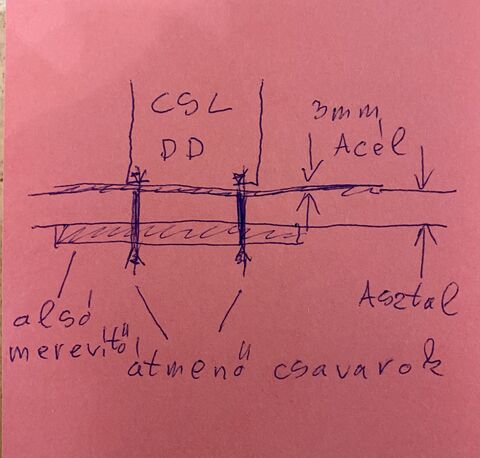 CSL
DD
3mm
Acél
Asztal
alsó
merevítő
átmenő csavarok